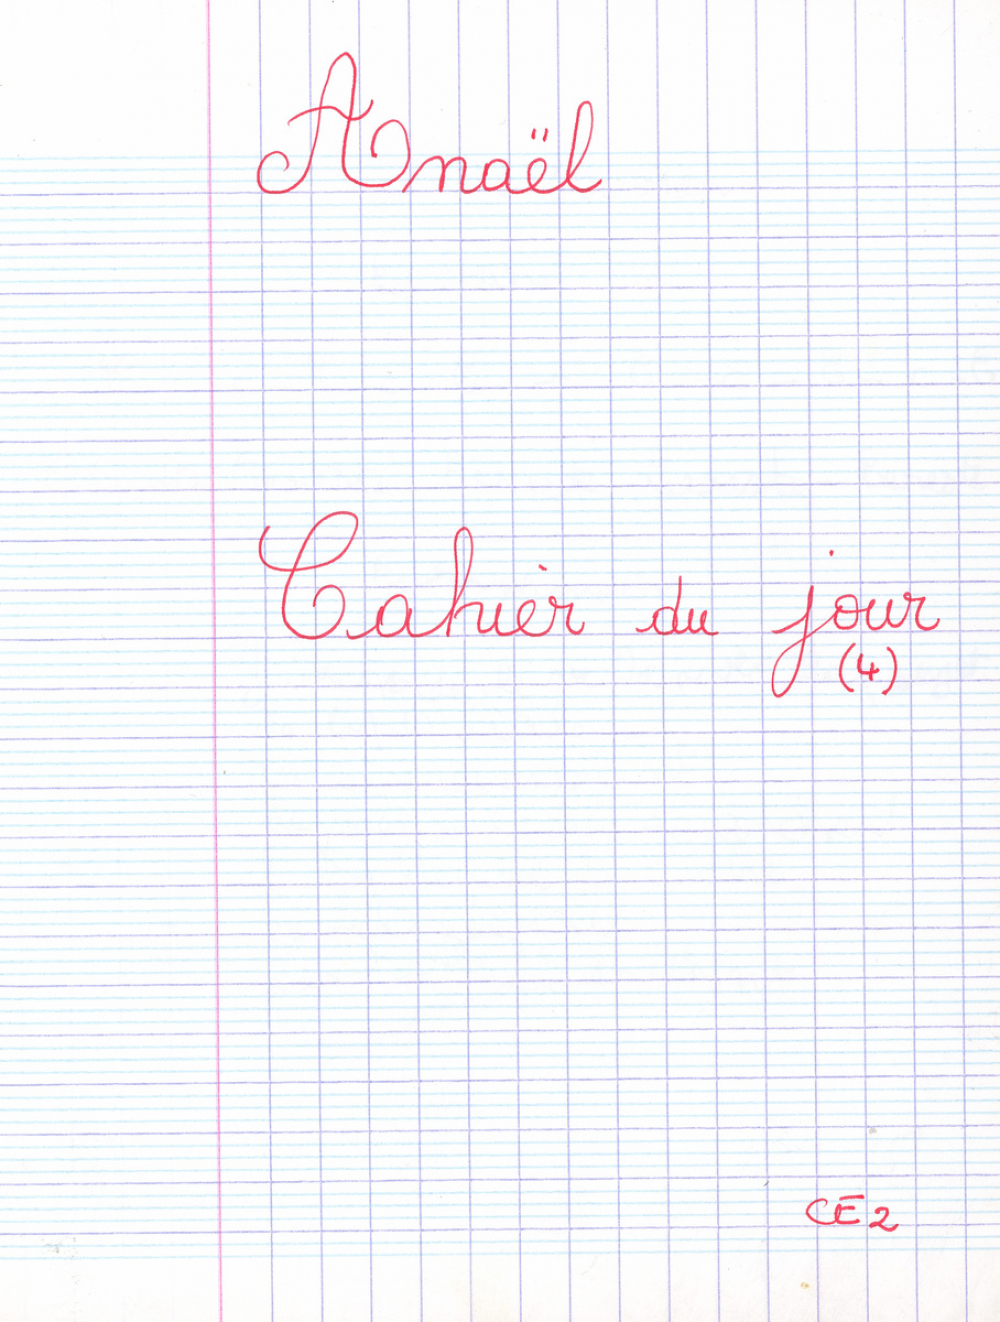 Anaël
Cahier du jour
(4)
CE2